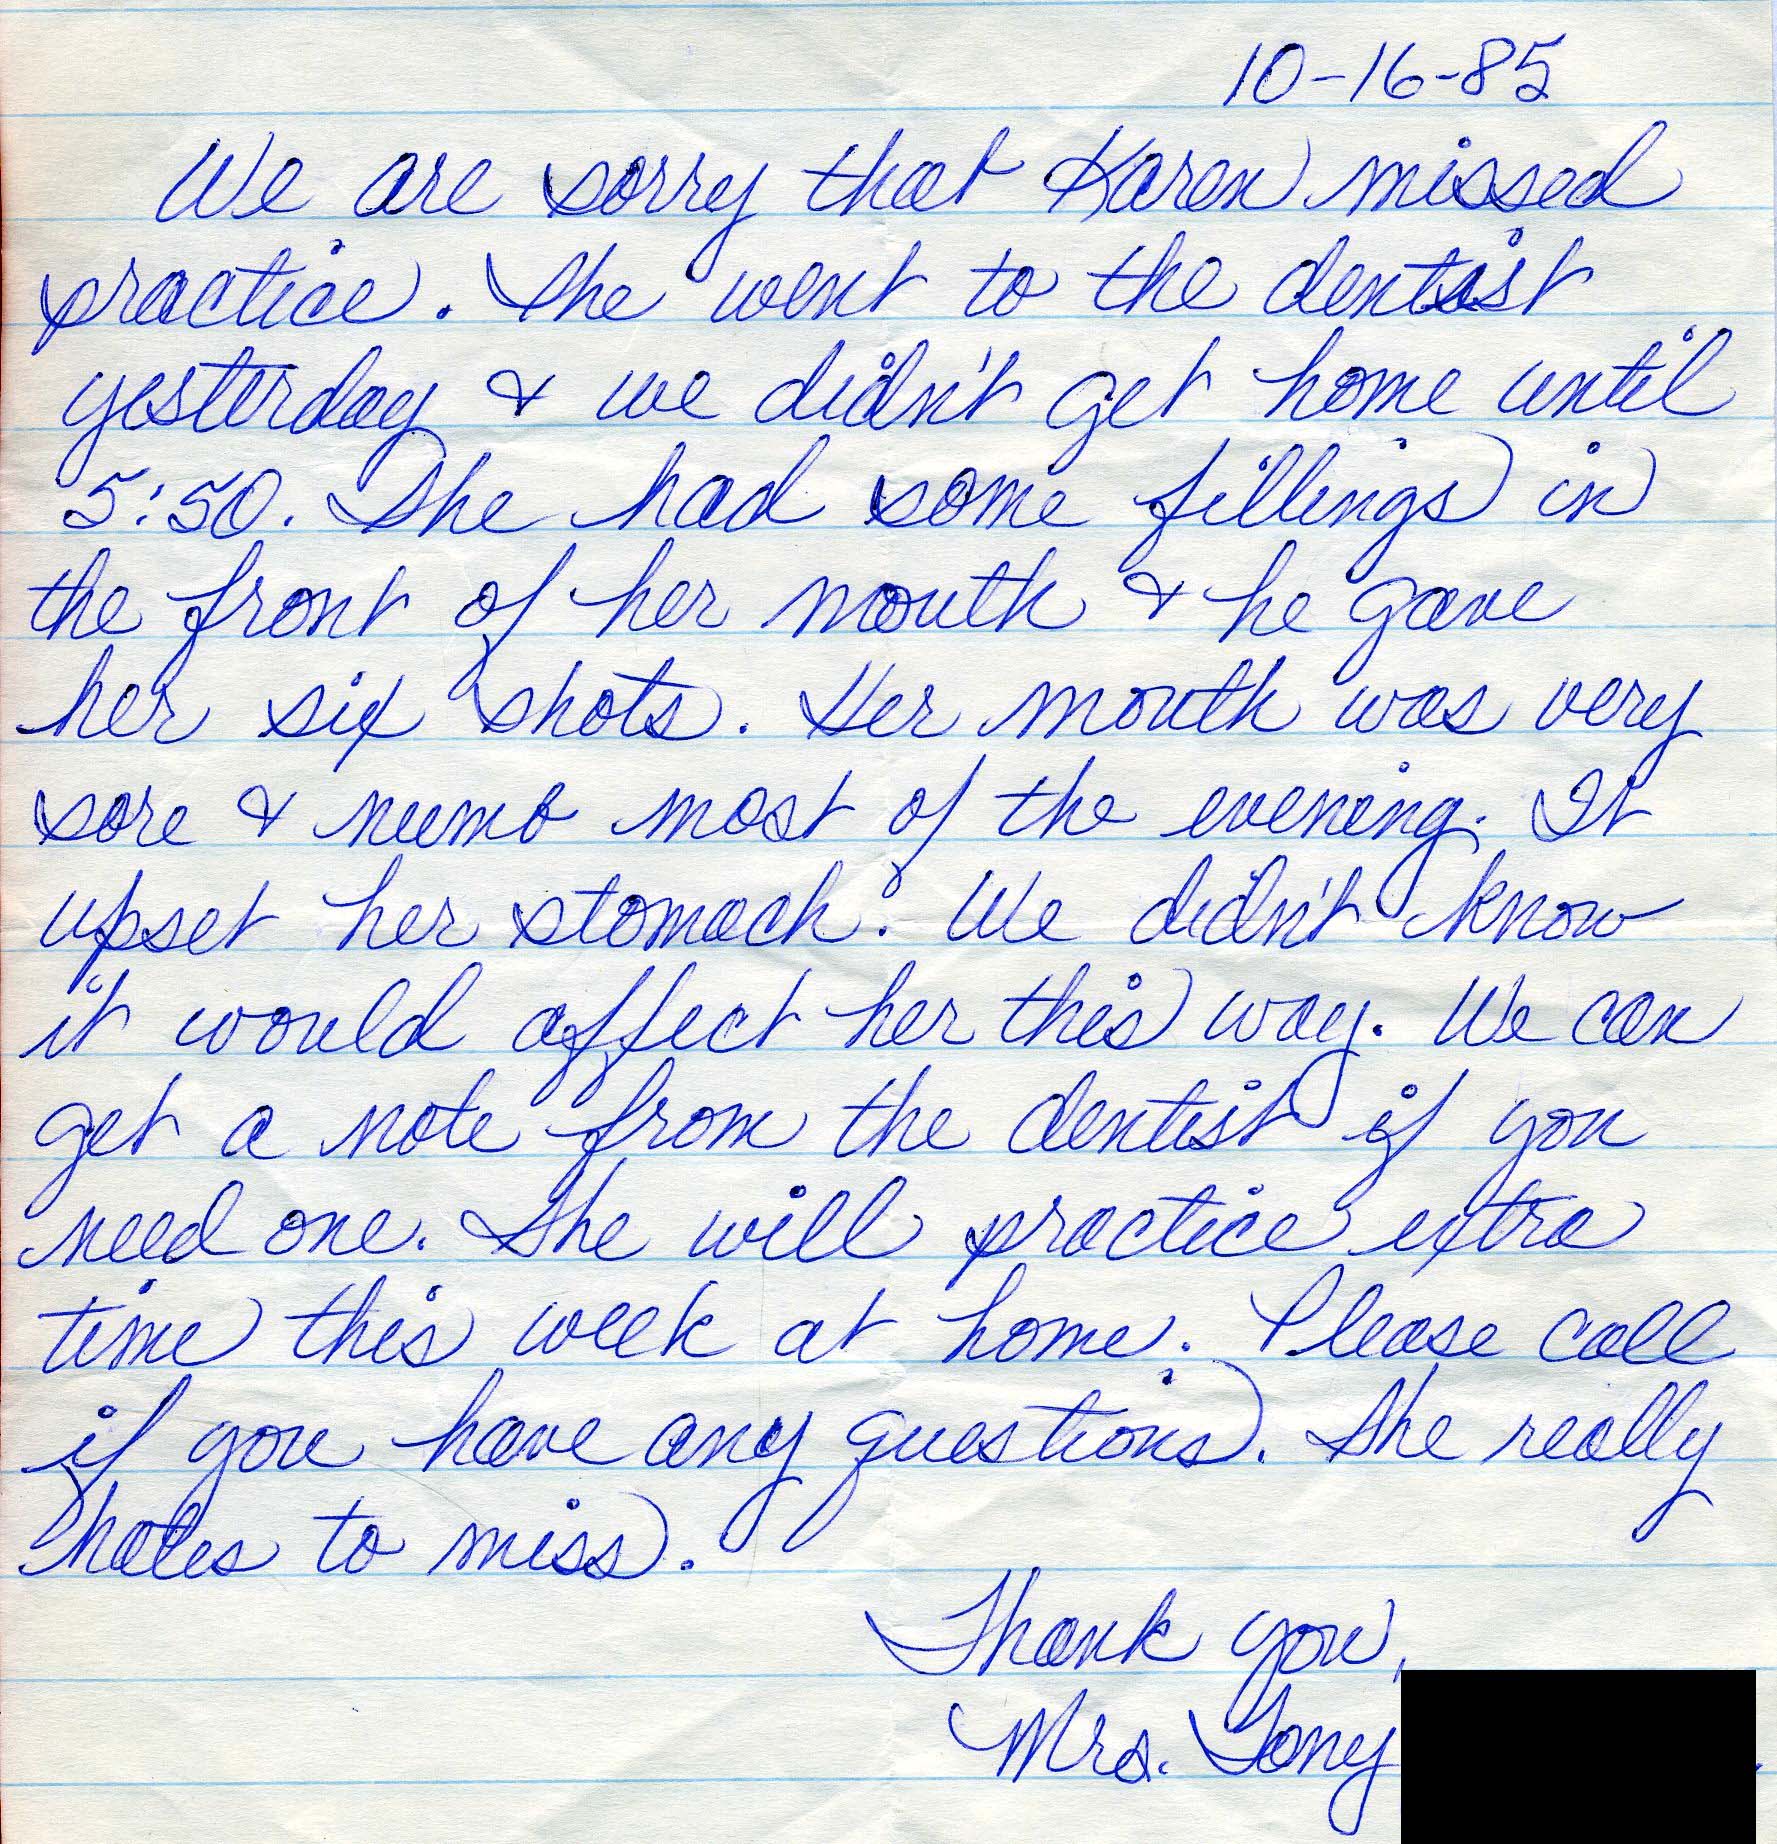 10-16-85
We are sorry that Karen missed
practice. She went to the dentist
yesterday & we didn't get home until
5:50. She had some fillings in
the front of her mouth & he gave
her six shots. Her mouth was very
sore & numb most of the evening. It
upset her stomach. We didn't know
it would affect her this way. We can
get a note from the dentist if you
need one. She will practice extra
time this week at home. Please call
if you have any questions. She really
hates to miss.
Thank you,
Mrs. Tony